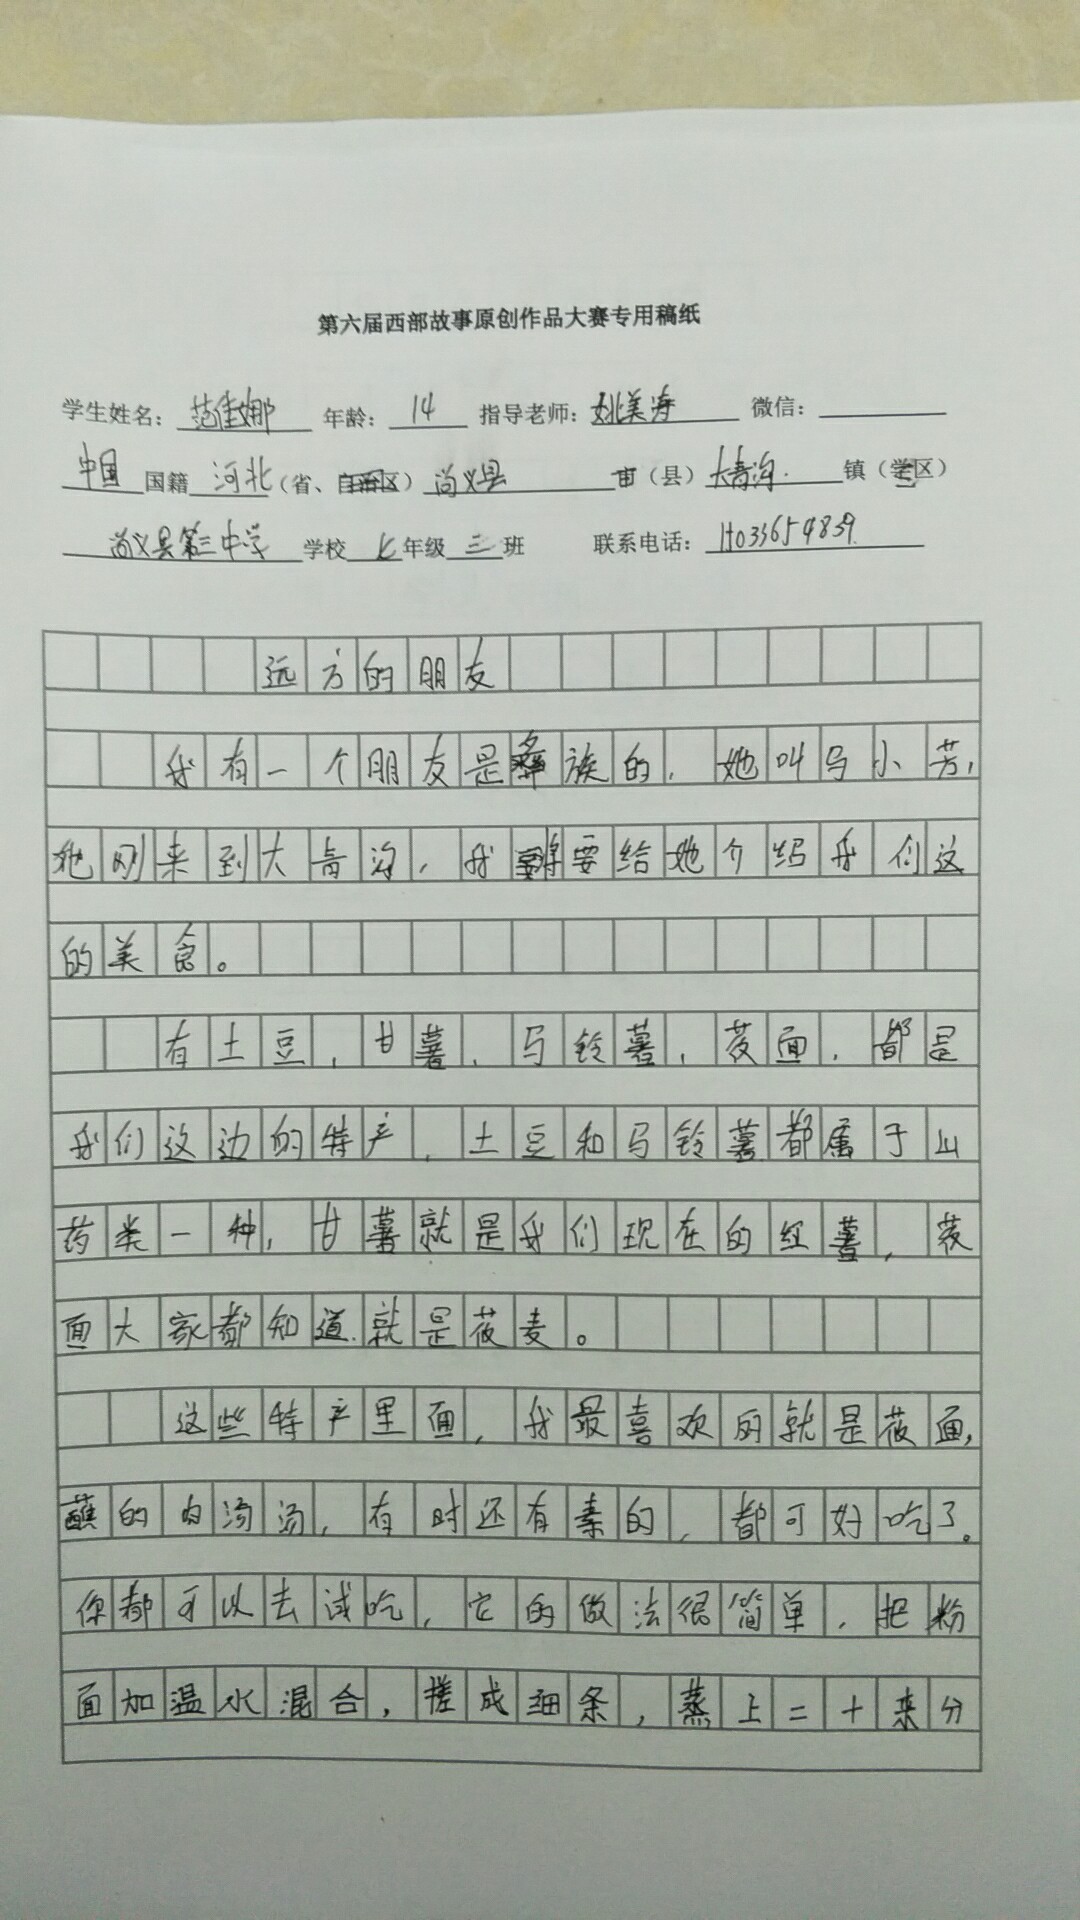 第六届西部故事原创作品大赛专用稿纸
学生姓名：范佳娜 年龄：14 指导老师：姚美涛 微信：
中国国籍 河北（省、自治区）尚义县 市（县）大青沟 镇（学区）
尚义县第三中学 学校 七年级 三班 联系电话：
远方的朋友
我有一个朋友是彝族的，她叫马小芳，
她刚来到大青沟，我将要给她介绍我们这
的美食。
有土豆，甘薯，马铃薯，莜面，都是
我们这边的特产，土豆和马铃薯都属于山
药类一种，甘薯就是我们现在的红薯，莜
面大家都知道就是莜麦。
这些特产里面，我最喜欢的就是莜面，
蘸的肉汤汤，有时还有素的，都可好吃了。
你都可以去试吃，它的做法很简单，把粉
面加温水混合，搓成细条，蒸上二十来分